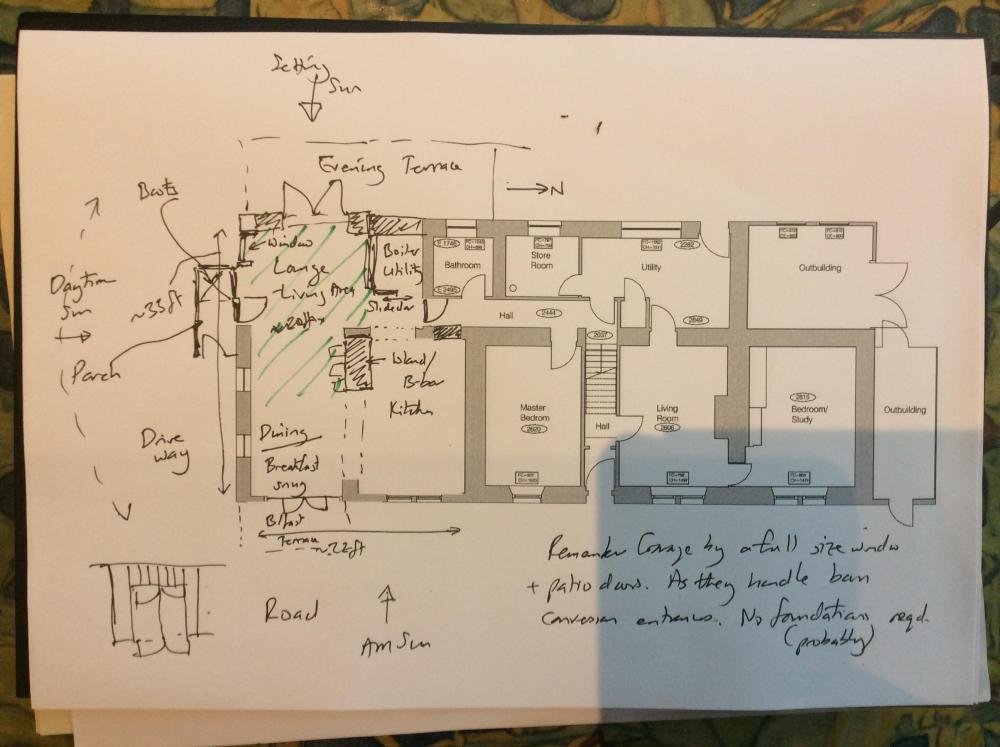 Setting
Sun
Evening Terrace
→ N
Boots
Window
Lounge
Living Area
~20ft x
Boiler
Utility
Slide door
E 1746
Bathroom
E 2495
Store
Room
Utility
2282
Outbuilding
Daytime
Sun
~35ft
Porch
Hall
2444
2037
2849
Island/
B-bar
Kitchen
Drive
way
Dining
Breakfast
snug
Master
Bedrom
2620
Hall
Living
Room
2606
2815
Bedroom/
Study
Outbuilding
B/fast
Terrace
~22ft
Road
AM Sun
Remember Garage by a full size window
+ patio doors. As they handle barn
conversion entrances. No foundations reqd.
(probably)